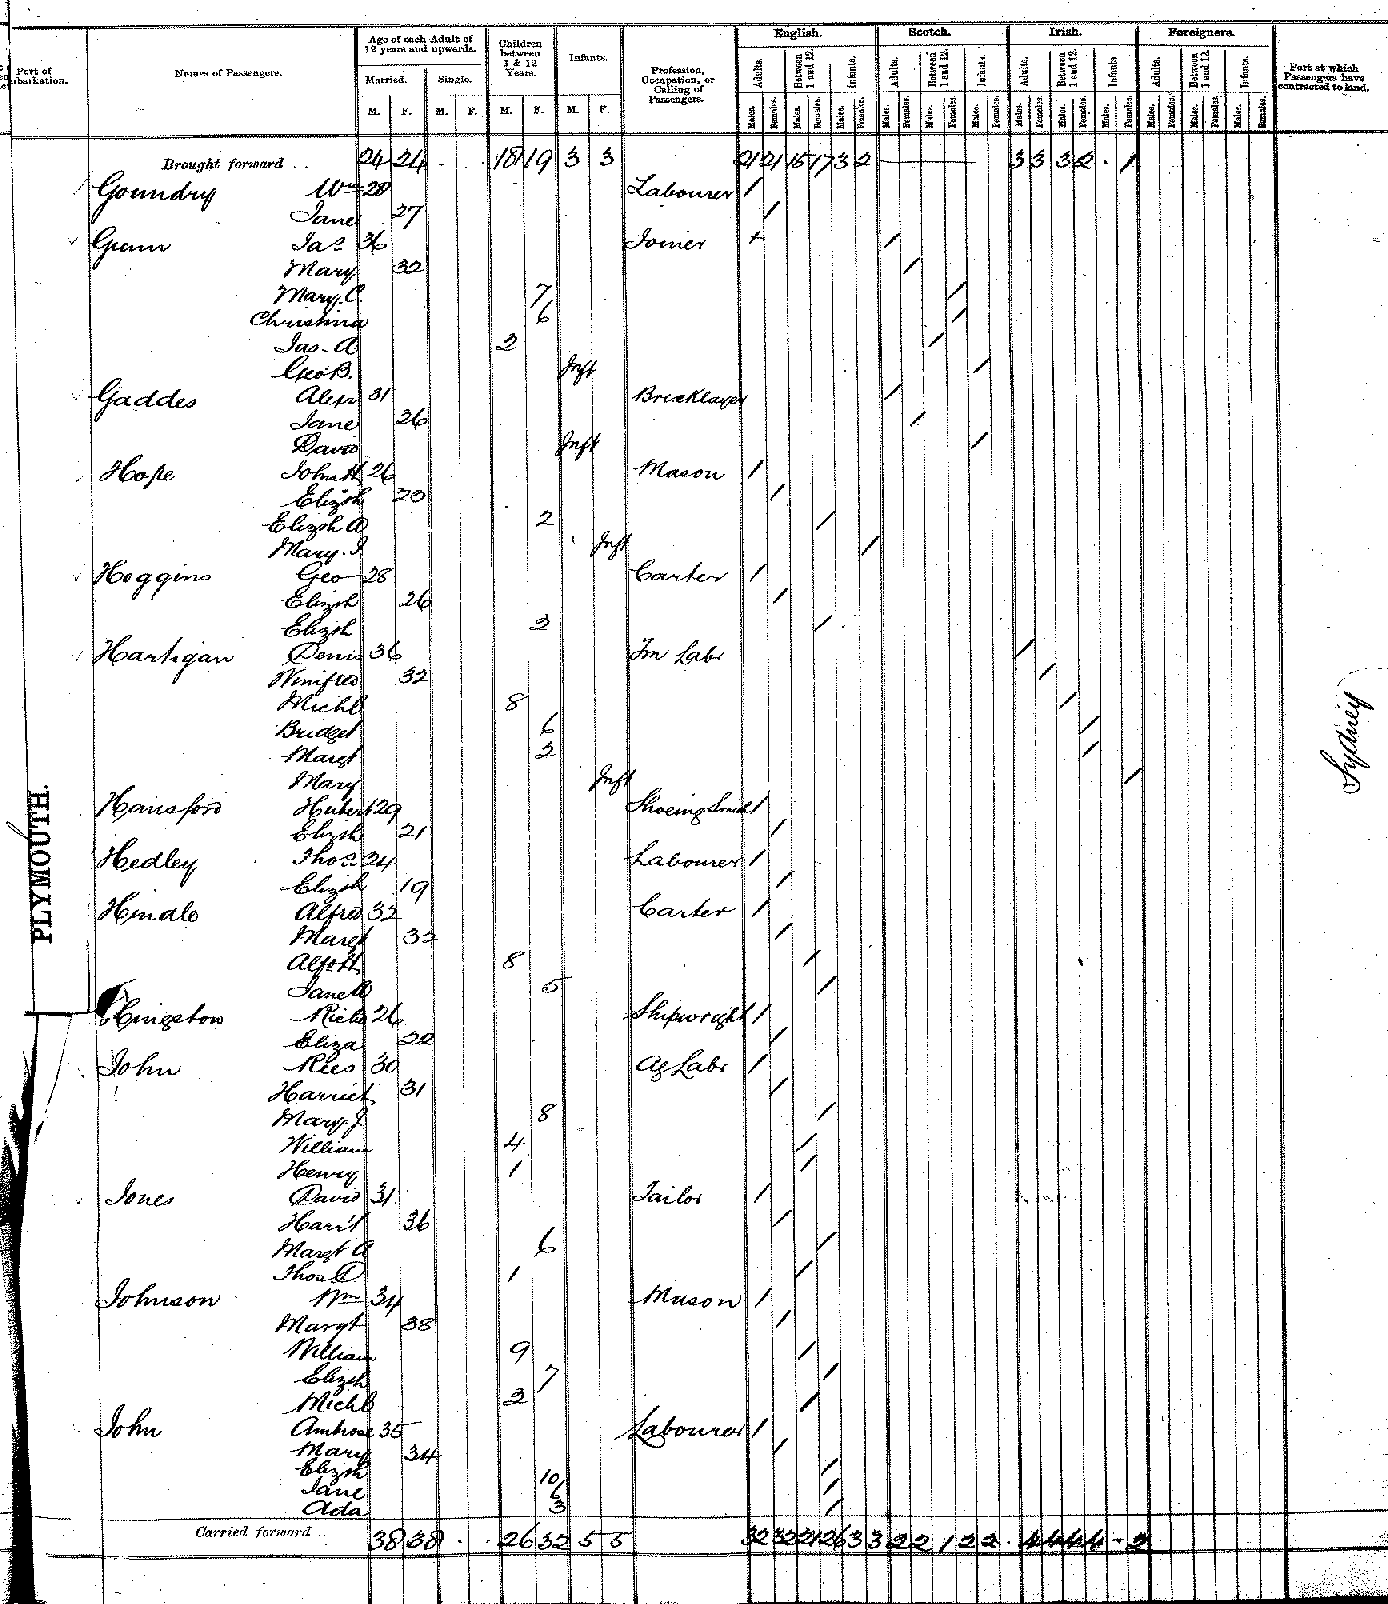 Port of
Embarkation.
Names of Passengers.
Age of each Adult of
12 years and upwards.
Married. Single.
M. F. M. F.
Children
between
1 & 12
Years.
M. F.
Infants.
M. F.
Profession,
Occupation, or
Calling of
Passengers.
English. Scotch. Irish. Foreigners.
Adults. Between 1 and 12. Infants. Adults. Between 1 and 12. Infants. Adults. Between 1 and 12. Infants Adults. Between 1 and 12 Infants.
Males. Females. Males. Females. Males. Females. Males. Females. Males. Females. Males. Females. Males. Females. Males. Females. Males. Females. Males. Females. Males. Females. Males. Females.
Port at which
Passengers have
contracted to land.
Brought forward 24 24 18 19 3 3 21 21 15 17 3 2 3 3 3 2 1
Goundry Wm 28 Labourer /
Jane 27 /
Jas 36 Joiner + /
Mary 32 /
Mary C. 7 /
Christina 6 /
Jas. A 2 /
Geo B. Inft /
Gaddes Alexr 31 Bricklayer /
Jane 26 /
David Inft /
Hope John H 26 Mason /
Elizth 20 /
Elizth A 2 /
Mary. J Inft /
Hoggins Geo 28 Carter /
Elizth 26 /
Elizth 2 /
Hartigan Denis 36 Fm Labr /
Winifred 32 /
Michl 8 /
Bridget 6 /
Margt 2 /
Mary Inft /
Hansford Hubert 29 Shoeing Smith /
Elizth 21 /
Hedley Thos 24 Labourer /
Elizth 19 /
Hindle Alfred 32 Carter /
Margt 32 /
Alf H. 8 /
Jane 5 /
Kingston Richd 26 Shipwright /
Eliza 22 /
John Rees 30 Ag Labr /
Harriet 31 /
Mary J. 8 /
William 4 /
Henry 1 /
Jones David 31 Tailor /
Harrt 36 /
Margt A 6 /
Thos D 1 /
Johnson Wm 34 Mason /
Margt 38 /
William 9 /
Elizth 7 /
Michl 2 /
John Ambrose 35 Labourer /
Mary 34 /
Elizth 10 /
Jane 6 /
Ada 3 /
Carried forward 38 38 26 32 5 5 32 32 21 26 3 3 2 2 1 2 2 4 4 4 4 - 2
PLYMOUTH.
Sydney